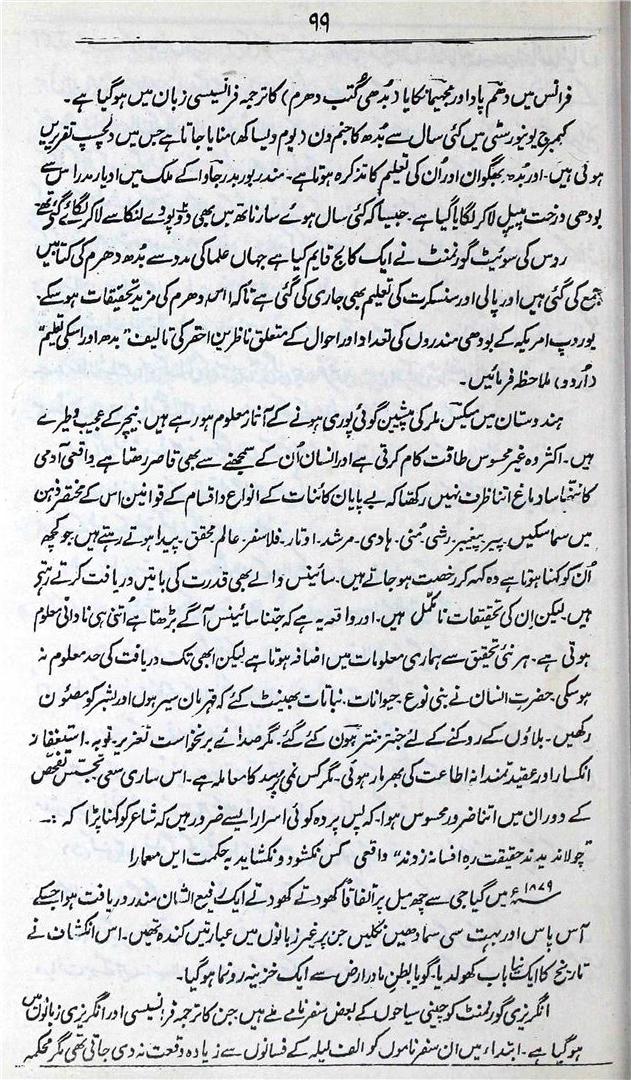 ۹۹
فرانس میں دھم پاد اور مجھیمانکایا (بُدھی کُتب دھرم) کا ترجمہ فرانسیسی زبان میں ہو گیا ہے۔
کیمبرج یونیورسٹی میں کئی سال سے بُدھ کا جنم دن (یوم ویساکھ) منایا جاتا ہے جس میں دلچسپ تقریریں
ہوتی ہیں۔ اور بُدھ بھگوان اور اُن کی تعلیم کا تذکرہ ہوتا ہے۔ مندر بوربدر جاوا کے ملک میں ادیار مدراس سے
بودھی درخت پیپل لا کر لگایا گیا ہے۔ جیسا کہ کئی سال ہوئے سارناتھ میں بھی دو پودے لنکا سے لا کر لگائے گئے تھے
روس کی سوئیٹ گورنمنٹ نے ایک کالج قایم کیا ہے جہاں علما کی مدد سے بُدھ دھرم کی کتابیں
جمع کی گئی ہیں اور پالی اور سنسکرت کی تعلیم بھی جاری کی گئی ہے تاکہ اس دھرم کی مزید تحقیقات ہو سکے۔
یوروپ امریکہ کے بودھی مندروں کی تعداد اور احوال کے متعلق ناظرین احقر کی تالیف "بدھ اور اسکی تعلیم"
(اُردو) ملاحظہ فرمائیں۔
ہندوستان میں میکس ملر کی پیشین گوئی پوری ہونے کے آثار معلوم ہو رہے ہیں۔ نیچر کے عجیب وطیرے
ہیں۔ اکثر وہ غیر محسوس طاقت کام کرتی ہے اور انسان اُن کے سمجھنے سے بھی قاصر رہتا ہے واقعی آدمی
کا ننھا سا دماغ اتنا ظرف نہیں رکھتا کہ بے پایان کائنات کے انواع و اقسام کے قوانین اس کے مختصر ذہن
میں سما سکیں۔ پیر۔ پیغمبر۔ رشی۔ مُنی۔ ہادی۔ مرشد۔ اوتار۔ فلاسفر۔ عالم محقق۔ پیدا ہوتے رہتے ہیں۔ جو کچھ
اُن کو کہنا ہوتا ہے وہ کہہ کر رخصت ہو جاتے ہیں۔ سائینس والے بھی قدرت کی باتیں دریافت کرتے رہتے
ہیں۔ لیکن اِن کی تحقیقات نامکمّل ہیں۔ اور واقعہ یہ ہے کہ جتنا سائینس آگے بڑھتا ہے اُتنی ہی نادانی معلوم
ہوتی ہے۔ ہر نئی تحقیق سے ہماری معلومات میں اضافہ ہوتا ہے لیکن ابھی تک دریافت کی حد معلوم نہ
ہو سکی۔ حضرتِ انسان نے بنی نوع۔ حیوانات۔ نباتات بھینٹ کئے کہ قہرمان سیر ہوں اور بشر کو مصئون
رکھیں۔ بلاؤں کے روکنے کے لئے جنتر منتر ہون کئے گئے۔ مگر صدائے برنخواست تعزیر۔ توبہ۔ استغفار
انکسار اور عقیدتمندانہ اطاعت کی بھرمار ہوئی۔ مگر کس نمی پرسد کا معاملہ ہے۔ اس ساری سعی تجسّس تفحّص
کے دوران میں اتنا ضرور محسوس ہوا۔ کہ پس پردہ کوئی اسرار ایسے ضرور ہیں کہ شاعر کو کہنا پڑا کہ :۔
"چو لا ندیدند حقیقت رہ افسانہ زدند" واقعی کس نکشود و نکشاید بہ حکمت ایں معما را
سنہ ۱۸۷۹ء میں گیا جی سے چھ میل پر اتفاقاً کھودتے کھودتے ایک رفیع الشان مندر دریافت ہوا جسکے
آس پاس اور بہت سی سمادھیں نکلیں جن پر غیر زبانوں میں عبارتیں کندہ تھیں۔ اس انکشاف نے
تاریخ کا ایک نیا باب کھول دیا۔ گویا بطن مادر ارض سے ایک خزینہ رونما ہو گیا۔
انگریزی گورنمنٹ کو چینی سیاحوں کے بعض سفر نامے ملے ہیں جن کا ترجمہ فرانسیسی اور انگریزی زبانوں میں
ہو گیا ہے۔ ابتداء میں ان سفر ناموں کو الف لیلہ کے فسانوں سے زیادہ وقعت نہ دی جاتی تھی مگر محکمہ